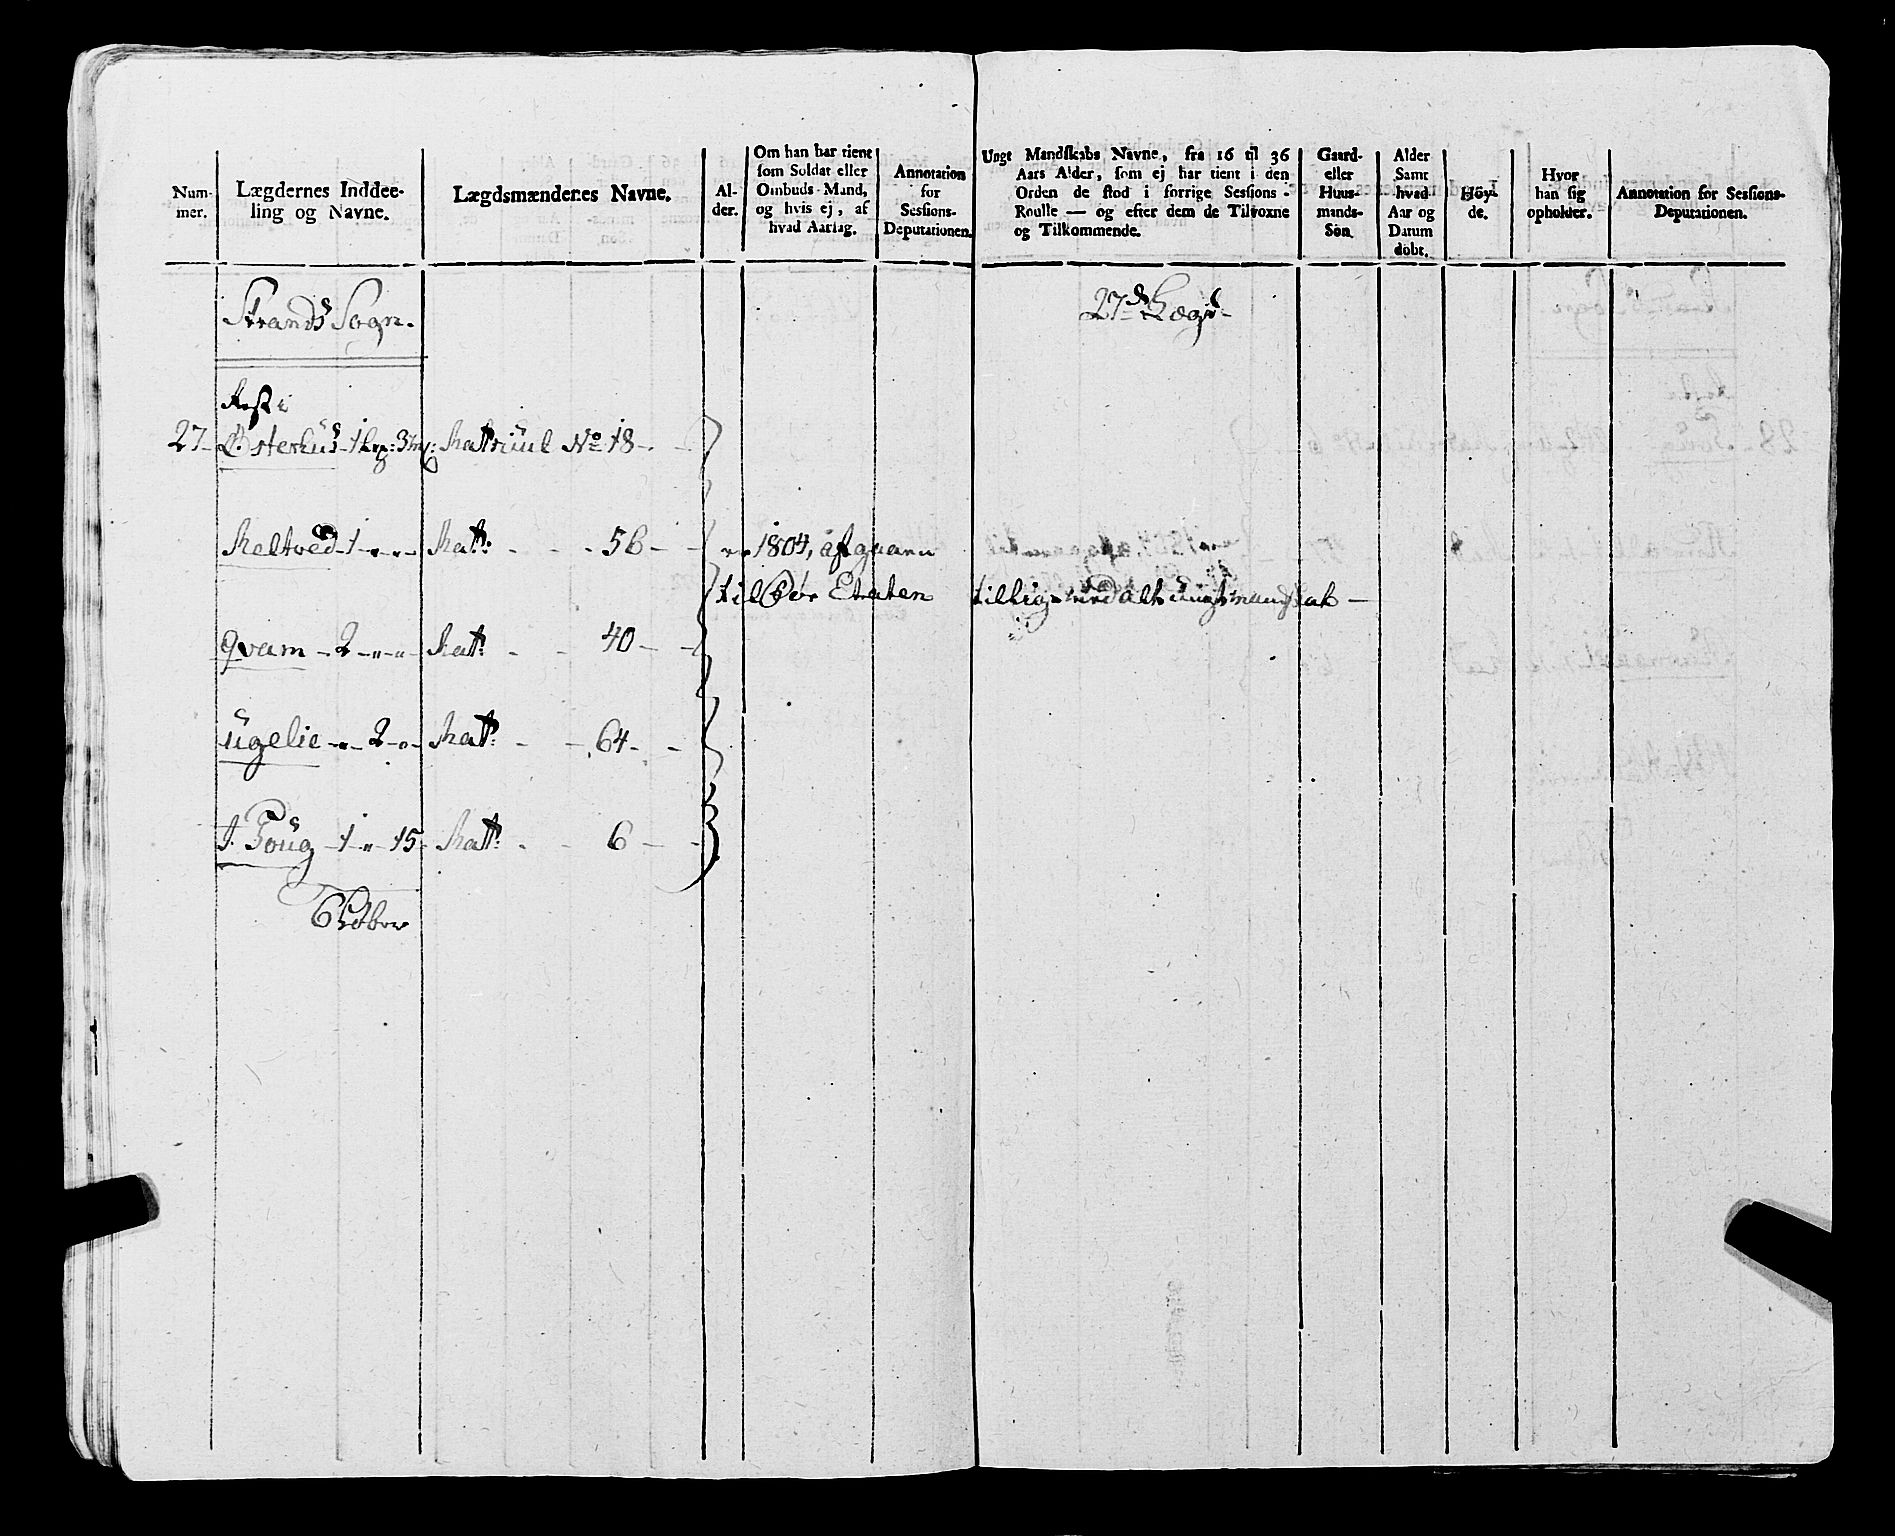 Num-
mer.
Lægdernes Inddee-
ling og Navne.
Lægdsmændenes Navne.
Al-
der.
Om han har tient
som Soldat eller
Ombuds-Mand,
og hvis ej, af
hvad Aarsag.
Annotation
for
Sessions-
Deputationen.
Ungt Mandskabs Navne, fra 16 til 36
Aars Alder, som ej har tient i den
Orden de stod i forrige Sessions-
Roulle — og efter dem de Tilvoxne
og Tilkommende.
Gaard-
eller
Huus-
mands-
Søn.
Alder
Samt
hvad
Aar og
Datum
döbt.
Höy-
de.
Hvor
han sig
opholder.
Annotation for Sessions-
Deputationen.
Strands Sogn.
27de Lægd
Rest i
27 Østerhus 1 Lp: 3 Mk: Matricul No 18
Meltved 1 Mat: 56 er 1804, afgaaen
til Søe Etaten tillige med alt ungt mandskab —
Qvam 2 Mat: 40
Ugelie 2 Mat: 64
I. Toug 1 15 Mat: 6